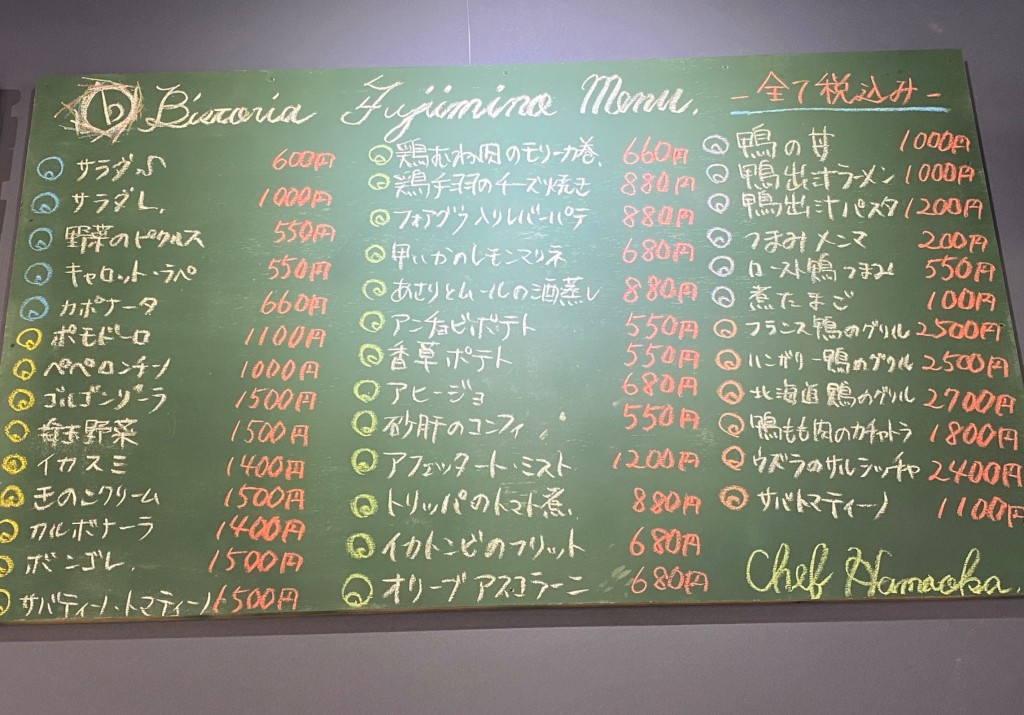 b Bistoria Fujimino Menu. -全て税込み-
サラダS 600円
サラダL. 1000円
野菜のピクルス 550円
キャロット・ラペ 550円
カポナータ 660円
ポモドーロ 1100円
ペペロンチーノ 1000円
ゴルゴンゾーラ 1500円
埼玉野菜 1500円
イカスミ 1400円
きのこクリーム 1500円
カルボナーラ 1400円
ボンゴレ. 1500円
サバティーノ・トマティーノ 1500円
鶏むね肉のモリーカ巻、 660円
鶏手羽のチーズ焼き 880円
フォアグラ入りレバーパテ 880円
甲いかのレモンマリネ 680円
あさりとムールの酒蒸し 880円
アンチョビポテト 550円
香草ポテト 550円
アヒージョ 680円
砂肝のコンフィ 550円
アフェッタート・ミスト 1200円
トリッパのトマト煮、 880円
イカトンビのフリット 680円
オリーブアスコラーニ 680円
鴨の丼 1000円
鴨出汁ラーメン 1000円
鴨出汁パスタ 1200円
つまみメンマ 200円
ロースト鴨つまみ 550円
煮たまご 100円
フランス鴨のグリル 2500円
ハンガリー鴨のグリル 2500円
北海道鴨のグリル 2700円
鴨もも肉のカチャトラ 1800円
ウズラのサルシッチャ 2400円
サバトマティーノ 1100円
Chef Hamaoka.